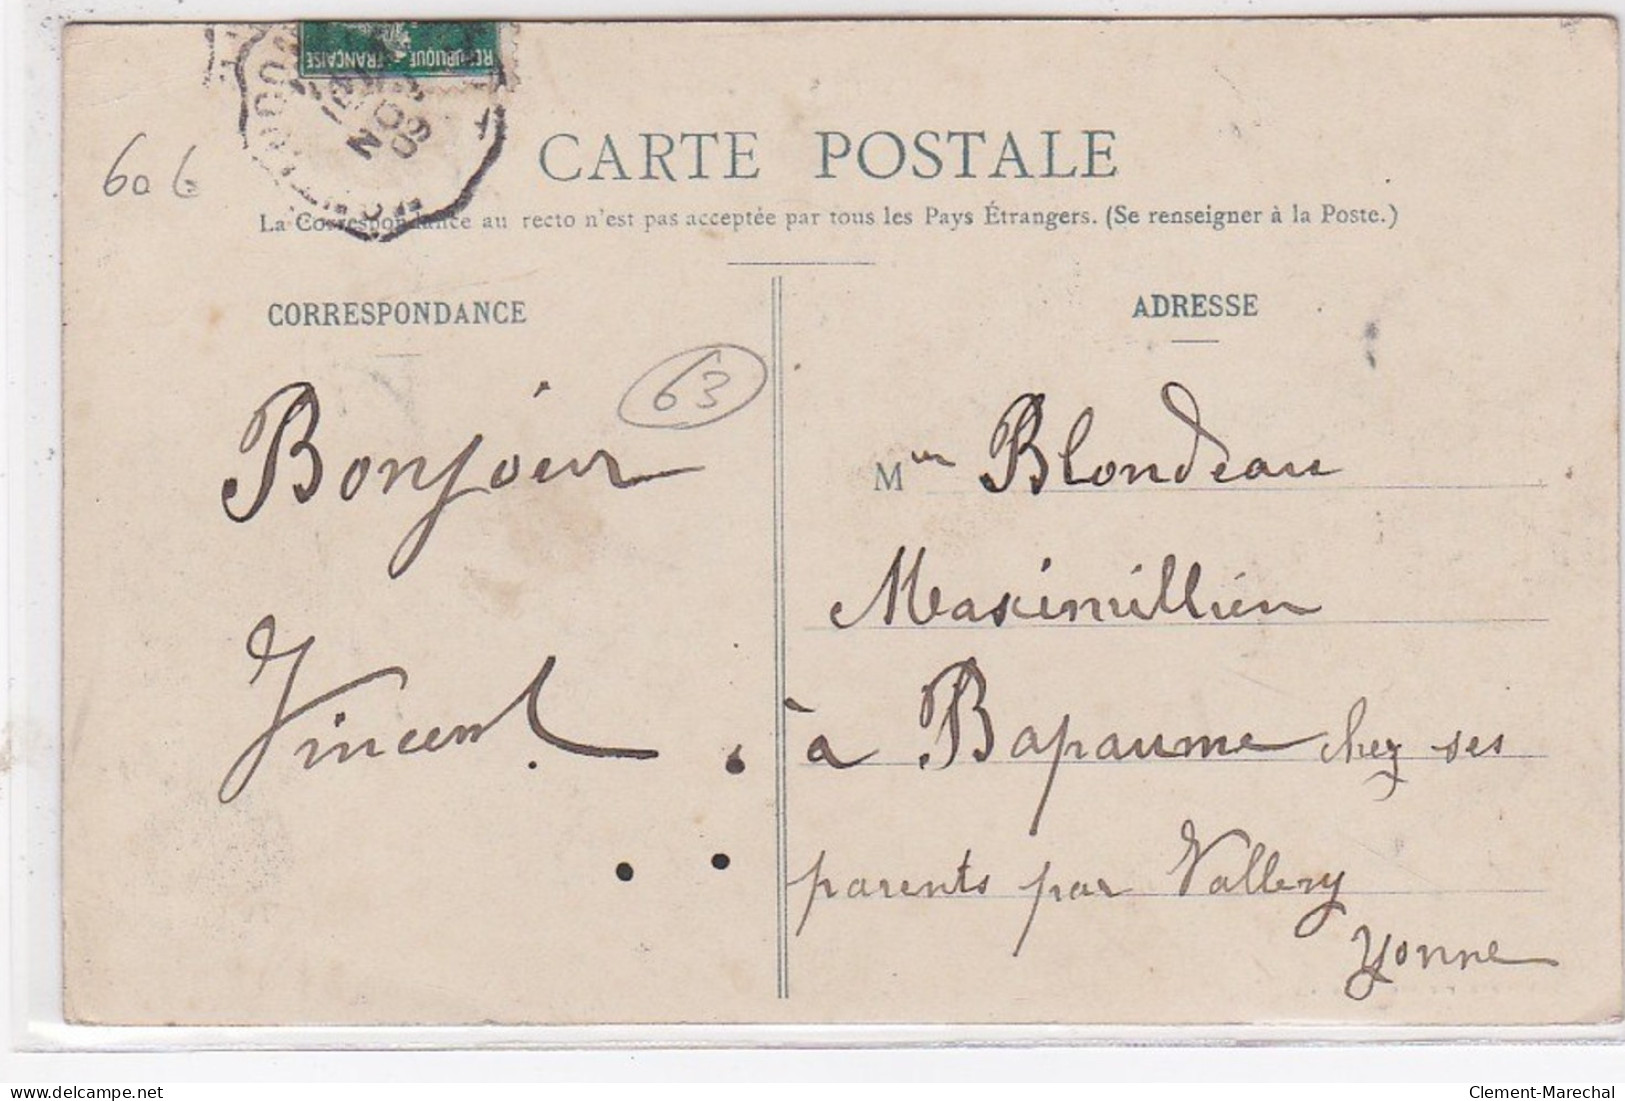 REPUBLIQUE FRANÇAISE
NOV
08
606
CARTE POSTALE
La Correspondance au recto n'est pas acceptée par tous les Pays Étrangers. (Se renseigner à la Poste.)
CORRESPONDANCE
63
Bonjour
Vincent
ADRESSE
Mur Blondeau
Maximillien
à Bapaume chez ses
parents par Vallery
Yonne
delcampe.net
Clement-Marechal